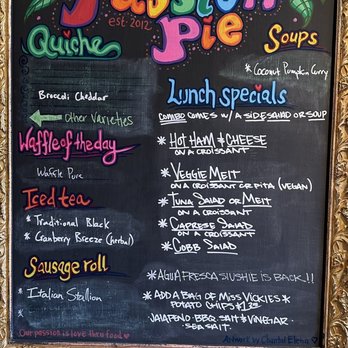 Passion
est. 2012
Pie
Quiche
Broccoli Cheddar
Other Varieties
Waffle of the day
Waffle Pure
Iced tea
* Traditional Black
* Cranberry Breeze (herbal)
Sausage roll
* Italian Stallion
*
Our passion is love thru food
Soups
* Coconut Pumpkin Curry
Lunch specials
COMBO COMES W/ A SIDE SALAD OR SOUP
* HOT HAM & CHEESE
ON A CROISSANT
* VEGGIE MELT
ON A CROISSANT OR PITA (VEGAN)
* TUNA SALAD OR MELT
ON A CROISSANT
* CAPRESE SALAD
ON A CROISSANT
* COBB SALAD
* AGUA FRESCA SLUSHIE IS BACK!!
* ADD A BAG OF MISS VICKIES *
POTATO CHIPS
JALAPENO·BBQ·SALT & VINEGAR·
SEA SALT·
Artwork by Chantal Elena